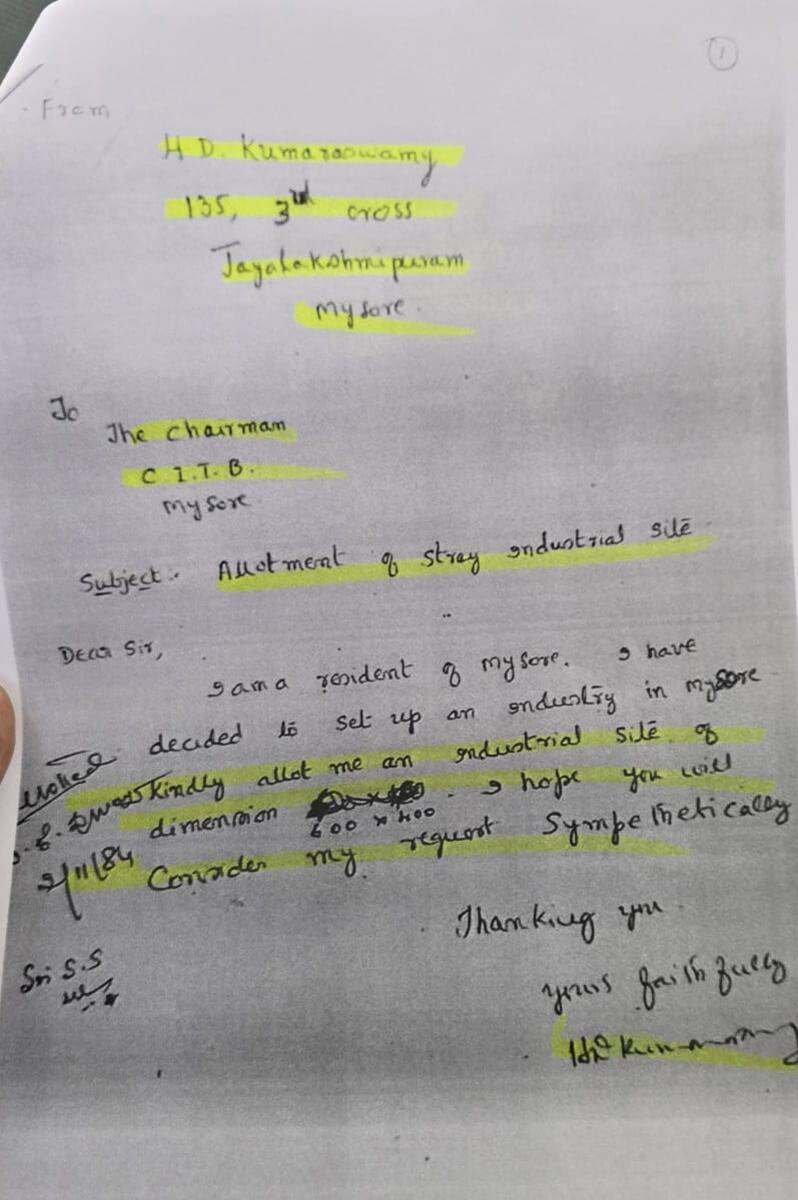 1
From
H D. Kumaraswamy
135, 3rd cross
Jayalakshmipuram
mysore.
To
The chairman
C I.T. B.
mysore
Subject:- Allotment of stray industrial site
Dear Sir,
I am a resident of mysore. I have
decided to set up an industry in mysore
kindly allot me an industrial site of
dimension 600 x 400. I hope you will
Consider my request Sympethetically
2/11/84
Thanking you
Sri S.S
yours faithfully
HD Kumaraswamy